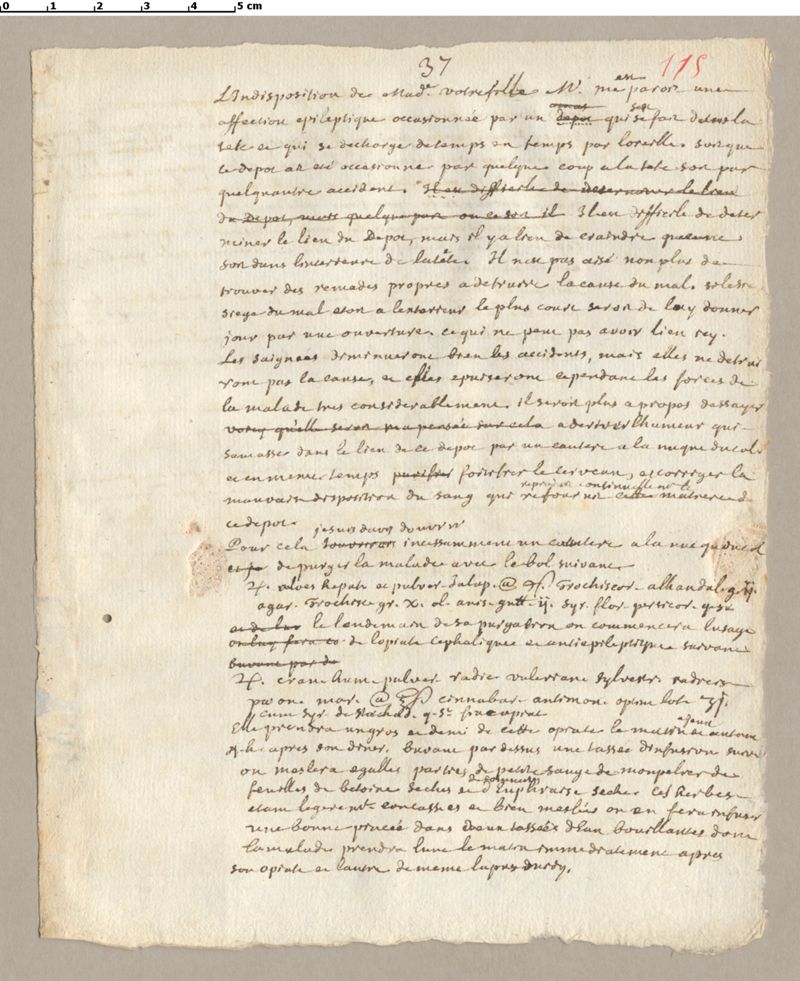 0 1 2 3 4 5 cm
37
115
L'Indisposition de Made. votre fille Mr. me paroit une
affection epileptique occasionnée par un depot qui se fait dans la
tete et qui se decharge de temps en temps par loreille. Soit que
ce depot ait eté occasionné par quelque coup a la tete soit par
quelquautre accident. Il est difficile de determiner le lieu
du Depot, mais quelque part ou ce soit il Il est difficile de deter
miner le lieu du Depot, mais il y a lieu de craindre que ce ne
soit dans linterieure de la tête. Il n'est pas aisé non plus de
trouver des remedes propres a detruire la cause du mal. si le
siege du mal etoit a lexterieur le plus court seroit de luy donner
jour par une ouverture. ce qui ne peut pas avoir lieu icy.
Les saignées diminueront bien les accidents, mais elles ne detrui
ront pas la cause, et elles epuiseront cependant les forces de
la malade tres considerablement. il seroit plus a propos dessayer
voicy qu'elle seroit ma pensée sur cela a deriver lhumeur qui
samasse dans le lieu de ce depot par un cautere a la nuque du col
et en meme temps purifier fortifier le cerveau, et corriger la
mauvaise disposition du sang qui refournit continuellement cette matiere a
ce depot.
je suis davis douvrir
Pour cela incessamment un cautere a la nuque du col
et de purger la malade avec le bol suivant
♃. aloes hepat. et pulver. Jalap. @ Trochiscor. alhandal. g. ij.
agar. Trochisc. gr. X. ol. anisi gutt. ij. syr. flor. persicor. q. s.
le lendemain de sa purgation on commencera lusage
de lopiate cephalique et antiepileptique suivant
buvant par de
♃. cran. hum. pulver. radic. valerian. sylvestr. radicis
pæon. mar. @ cinnabar. antimon. opium lot. ʒj.
cum syr. de stœchad. q. s. fiat opiat.
Elle prendra un gros et demi de cette opiate le matin a jeun et autant
4. h. apres son diner. buvant par dessus une tassée dinfusion suiv.
on meslera egalles parties de petite sauge de
feuilles de betoine seches et d'Euphraise seches Ces herbes
etant legeremt. concassées et bien meslées on en fera infuser
une bonne pincée dans deux tassées d'Eau bouillantes dont
la malade prendra lune le matin immediatement apres
son opiate et lautre de meme lapres dinée.